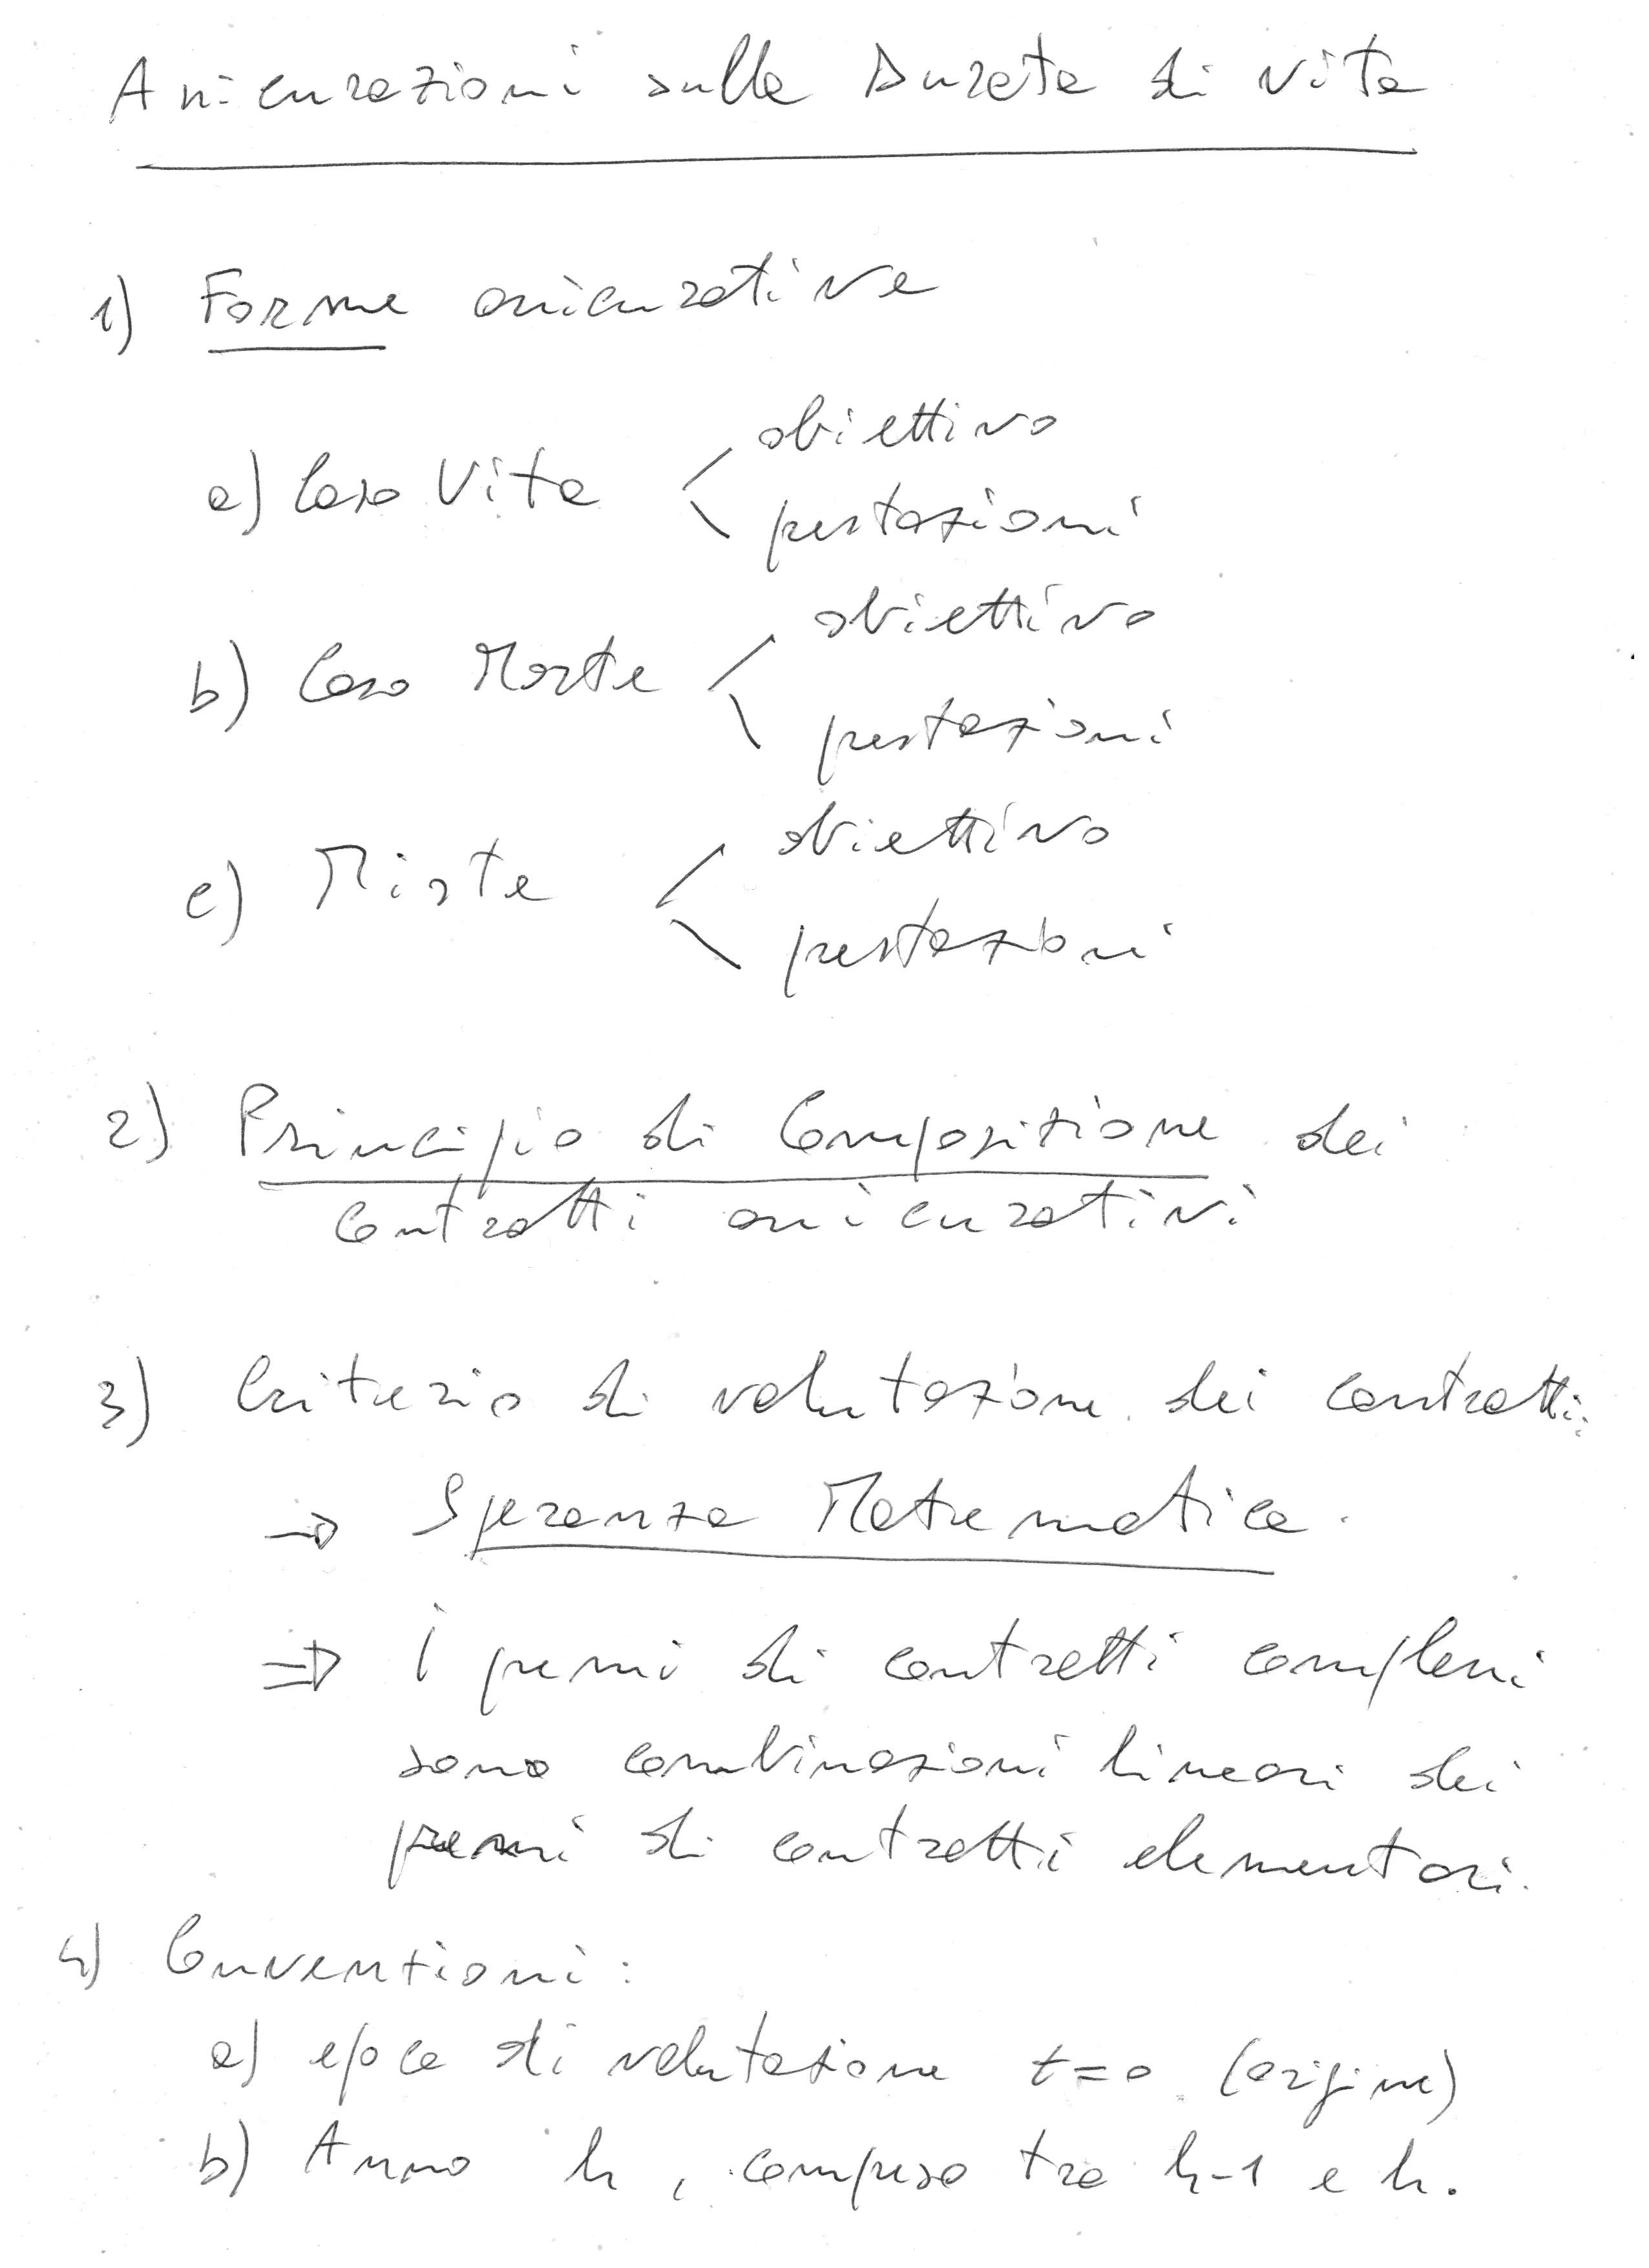 Assicurazioni sulla Durata di vita
1) Forme assicurative
a) Caso Vita < obiettivo
prestazioni
b) Caso Morte < obiettivo
prestazioni
c) Miste < obiettivo
prestazioni
2) Principio di Composizione dei
contratti assicurativi
3) Criterio di valutazione dei contratti:
→ Speranza Matematica.
⇒ I premi di contratti complessi
sono combinazioni lineari dei
premi di contratti elementari.
4) Convenzioni:
a) epoca di valutazione t=0 (origine)
b) Anno h, compreso tra h-1 e h.